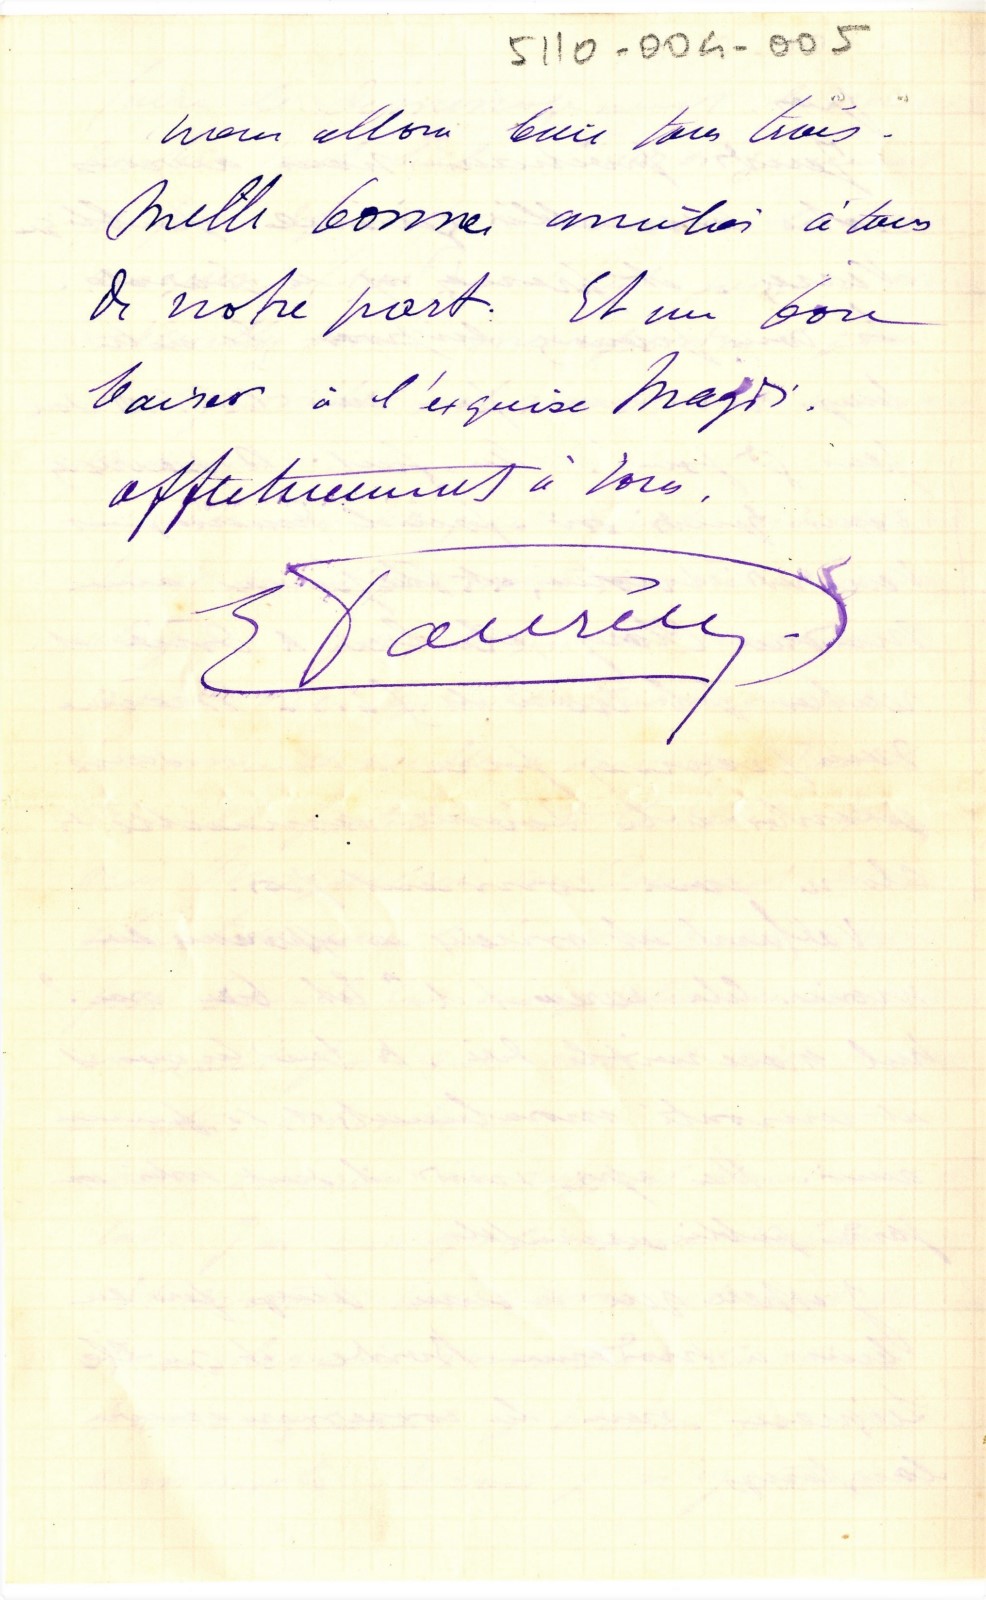 5110-004-005
nous allons bien tous trois.
Mille bonnes amitiés à tous
de notre part. Et un bon
baiser à l'exquise Magdi.
affectueusement à vous.
E Taurény.